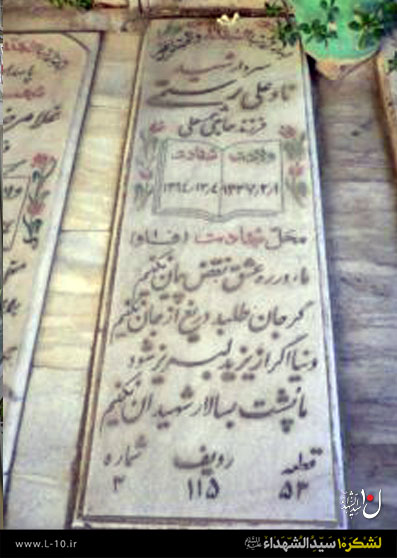 سردار شهید
نادعلی رستمی
فرزند حاجتعلی
ولادت شهادت
۱۳۳۷/۲/۱ ۱۳۶۴/۱۲/۴
محل شهادت (فاو)
ما در ره عشق نقض پیمان نکنیم
گر جان طلبد دریغ از جان نکنیم
دنیا اگر از یزید لبریز شود
ما پشت به سالار شهیدان نکنیم
قطعه ردیف شماره
۵۳ ۱۱۵ ۳
www.L-10.ir
لشکر۱۰سیدالشهداء